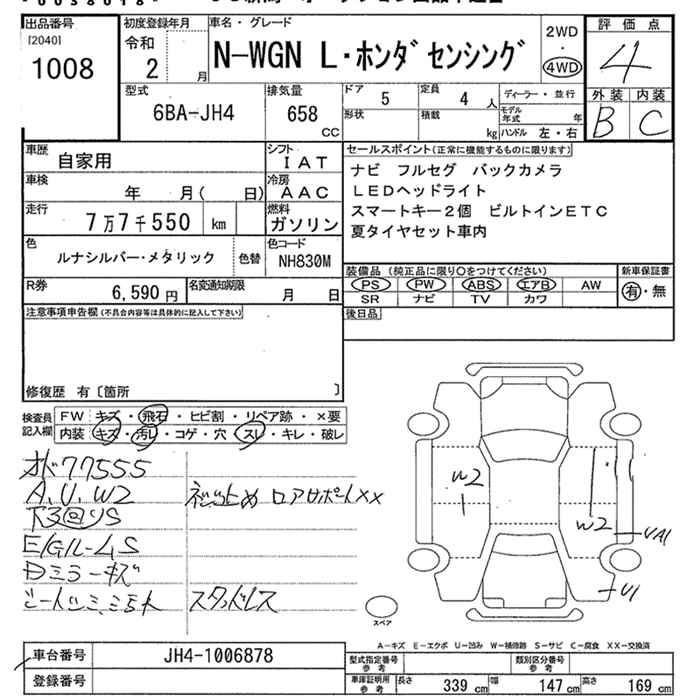 出品番号
[2040]
1008
初度登録年月
令和
2 月
車名・グレード
N-WGN L・ホンダセンシング
2WD
・
4WD
評価点
4
外装 内装
B C
型式
6BA-JH4
排気量
658
CC
ドア
5
定員
4 人
形状
積載
kg
ディーラー・並行
モデル年式 年
ハンドル 左・右
車歴
自家用
シフト
IAT
車検
年 月( 日)
冷房
AAC
走行
7万7千550 km
燃料
ガソリン
色
ルナシルバー・メタリック
色替
色コード
NH830M
R券
6,590 円
名変通知期限
月 日
セールスポイント(正常に機能するものに限ります)
ナビ フルセグ バックカメラ
LEDヘッドライト
スマートキー2個 ビルトインETC
夏タイヤセット車内
装備品(純正品に限り○をつけてください)
PS PW ABS エアB AW
SR ナビ TV カワ
新車保証書
有・無
注意事項申告欄(不具合内容等は具体的に記入して下さい)
後日品
修復歴 有〔箇所 〕
検査員記入欄
FW キズ・飛石・ヒビ割・リペア跡・×要
内装 キズ・汚レ・コゲ・穴・スレ・キレ・破レ
77555
A.U.W2
ロアサポートXX
下回りS
E/Gルーム S
ミラーキズ
スタッドレス
W2
W2
U1
スペア
A-キズ E-エクボ U-凹み W-補修跡 S-サビ C-腐食 XX-交換済
車台番号
JH4-1006878
登録番号
型式指定番号
参考
類別区分番号
参考
車庫証明用
参考
長さ 339 cm
幅 147 cm
高さ 169 cm